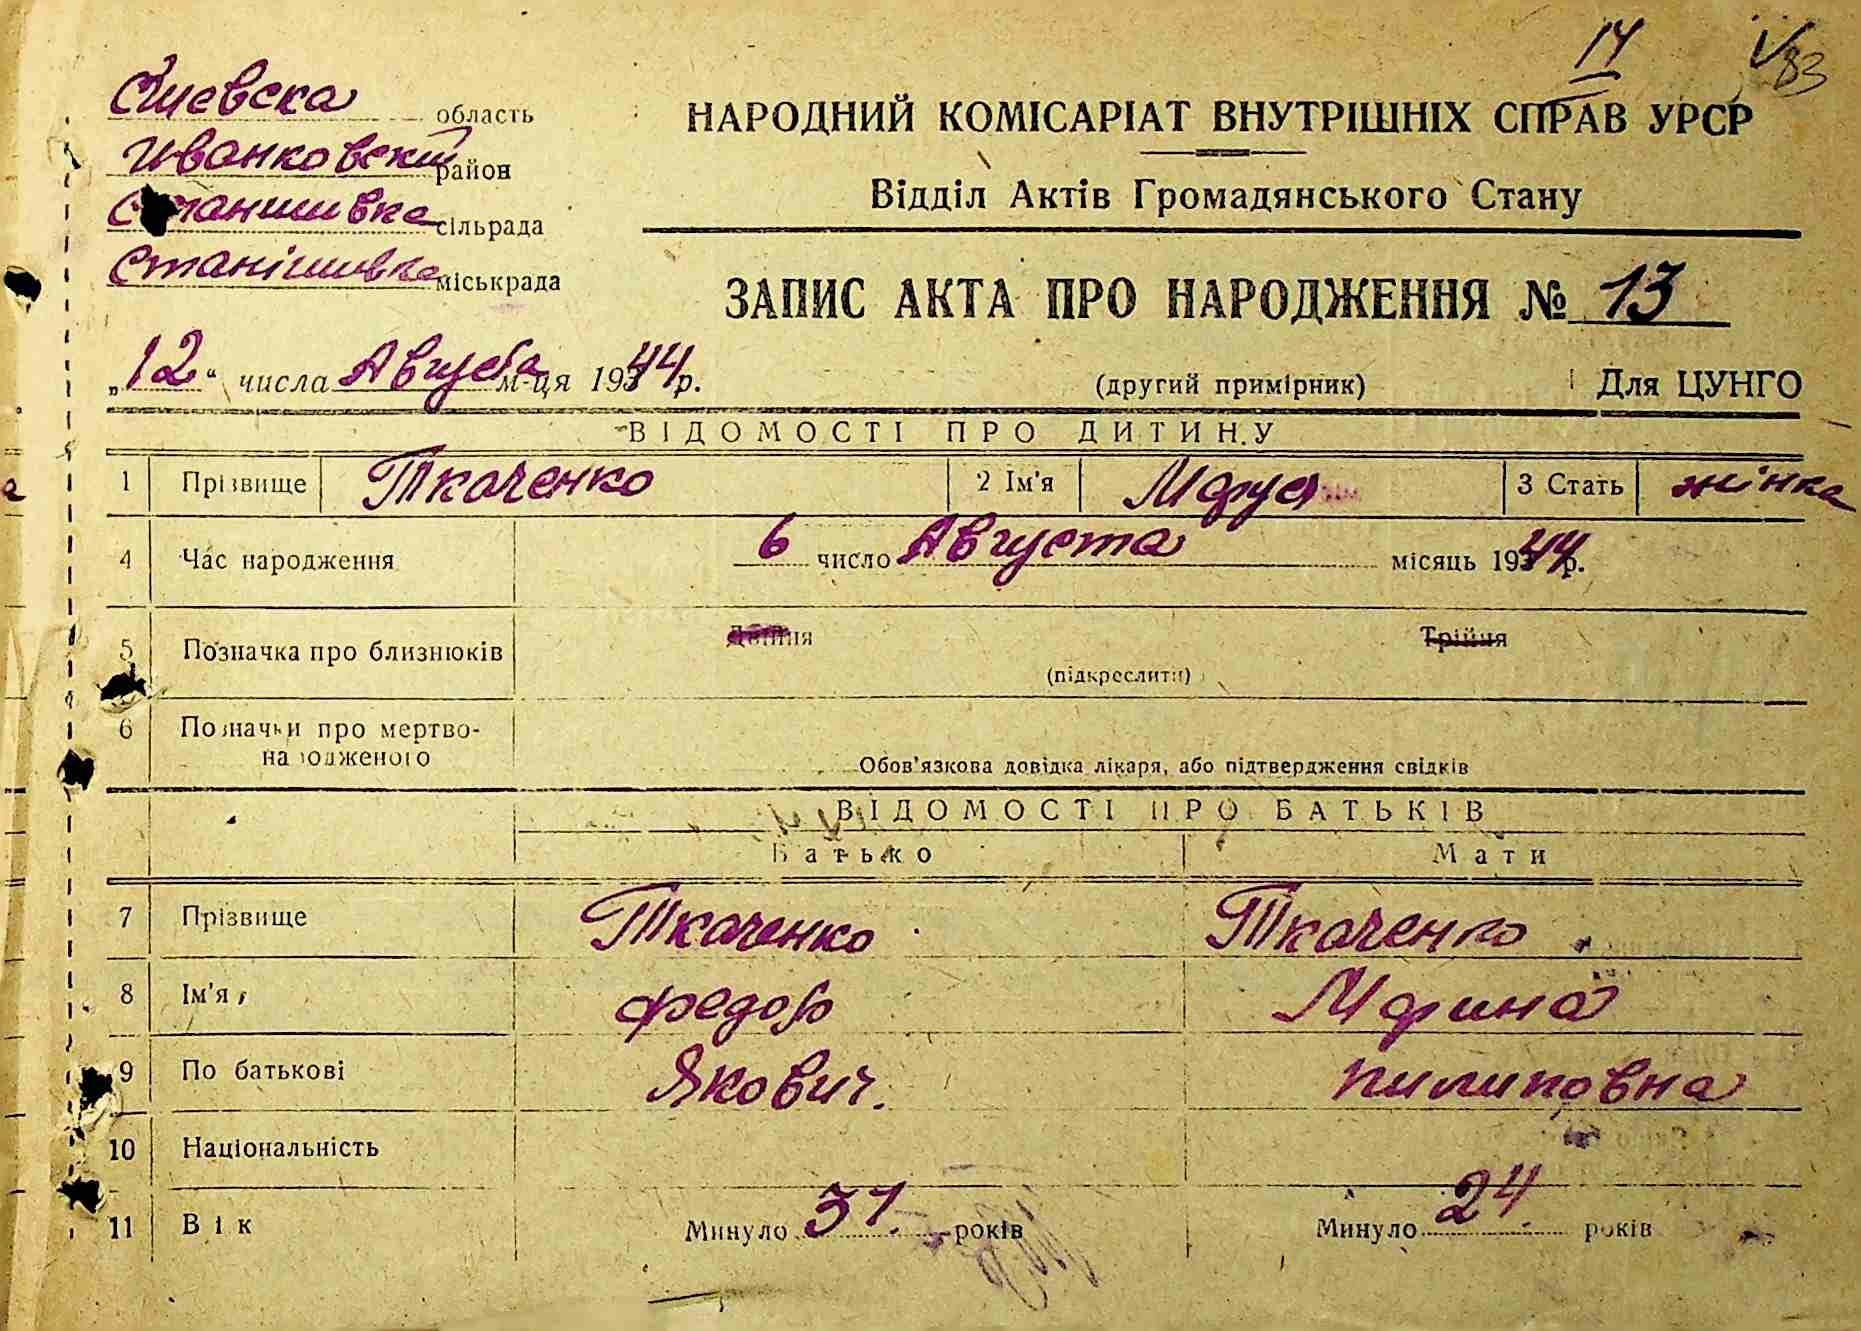 14 83
Киевска область
Иванковский район
Станишивка сільрада
Станішивка міськрада
НАРОДНИЙ КОМІСАРІАТ ВНУТРІШНІХ СПРАВ УРСР
Відділ Актів Громадянського Стану
ЗАПИС АКТА ПРО НАРОДЖЕННЯ № 13
„12“ числа Августа м-ця 1944 р. (другий примірник) Для ЦУНГО
ВІДОМОСТІ ПРО ДИТИНУ
1 Прізвище Ткаченко 2 Ім'я Маруся 3 Стать жінка
4 Час народження 6 число Августа місяць 1944 р.
5 Позначка про близнюків Двійня Трійня
(підкреслити)
6 Позначки про мертво-
народженого
Обов'язкова довідка лікаря, або підтвердження свідків
ВІДОМОСТІ ПРО БАТЬКІВ
Батько Мати
7 Прізвище Ткаченко Ткаченко
8 Ім'я Федор Марина
9 По батькові Якович. Пилиповна
10 Національність
11 Вік Минуло 37 років Минуло 24 років